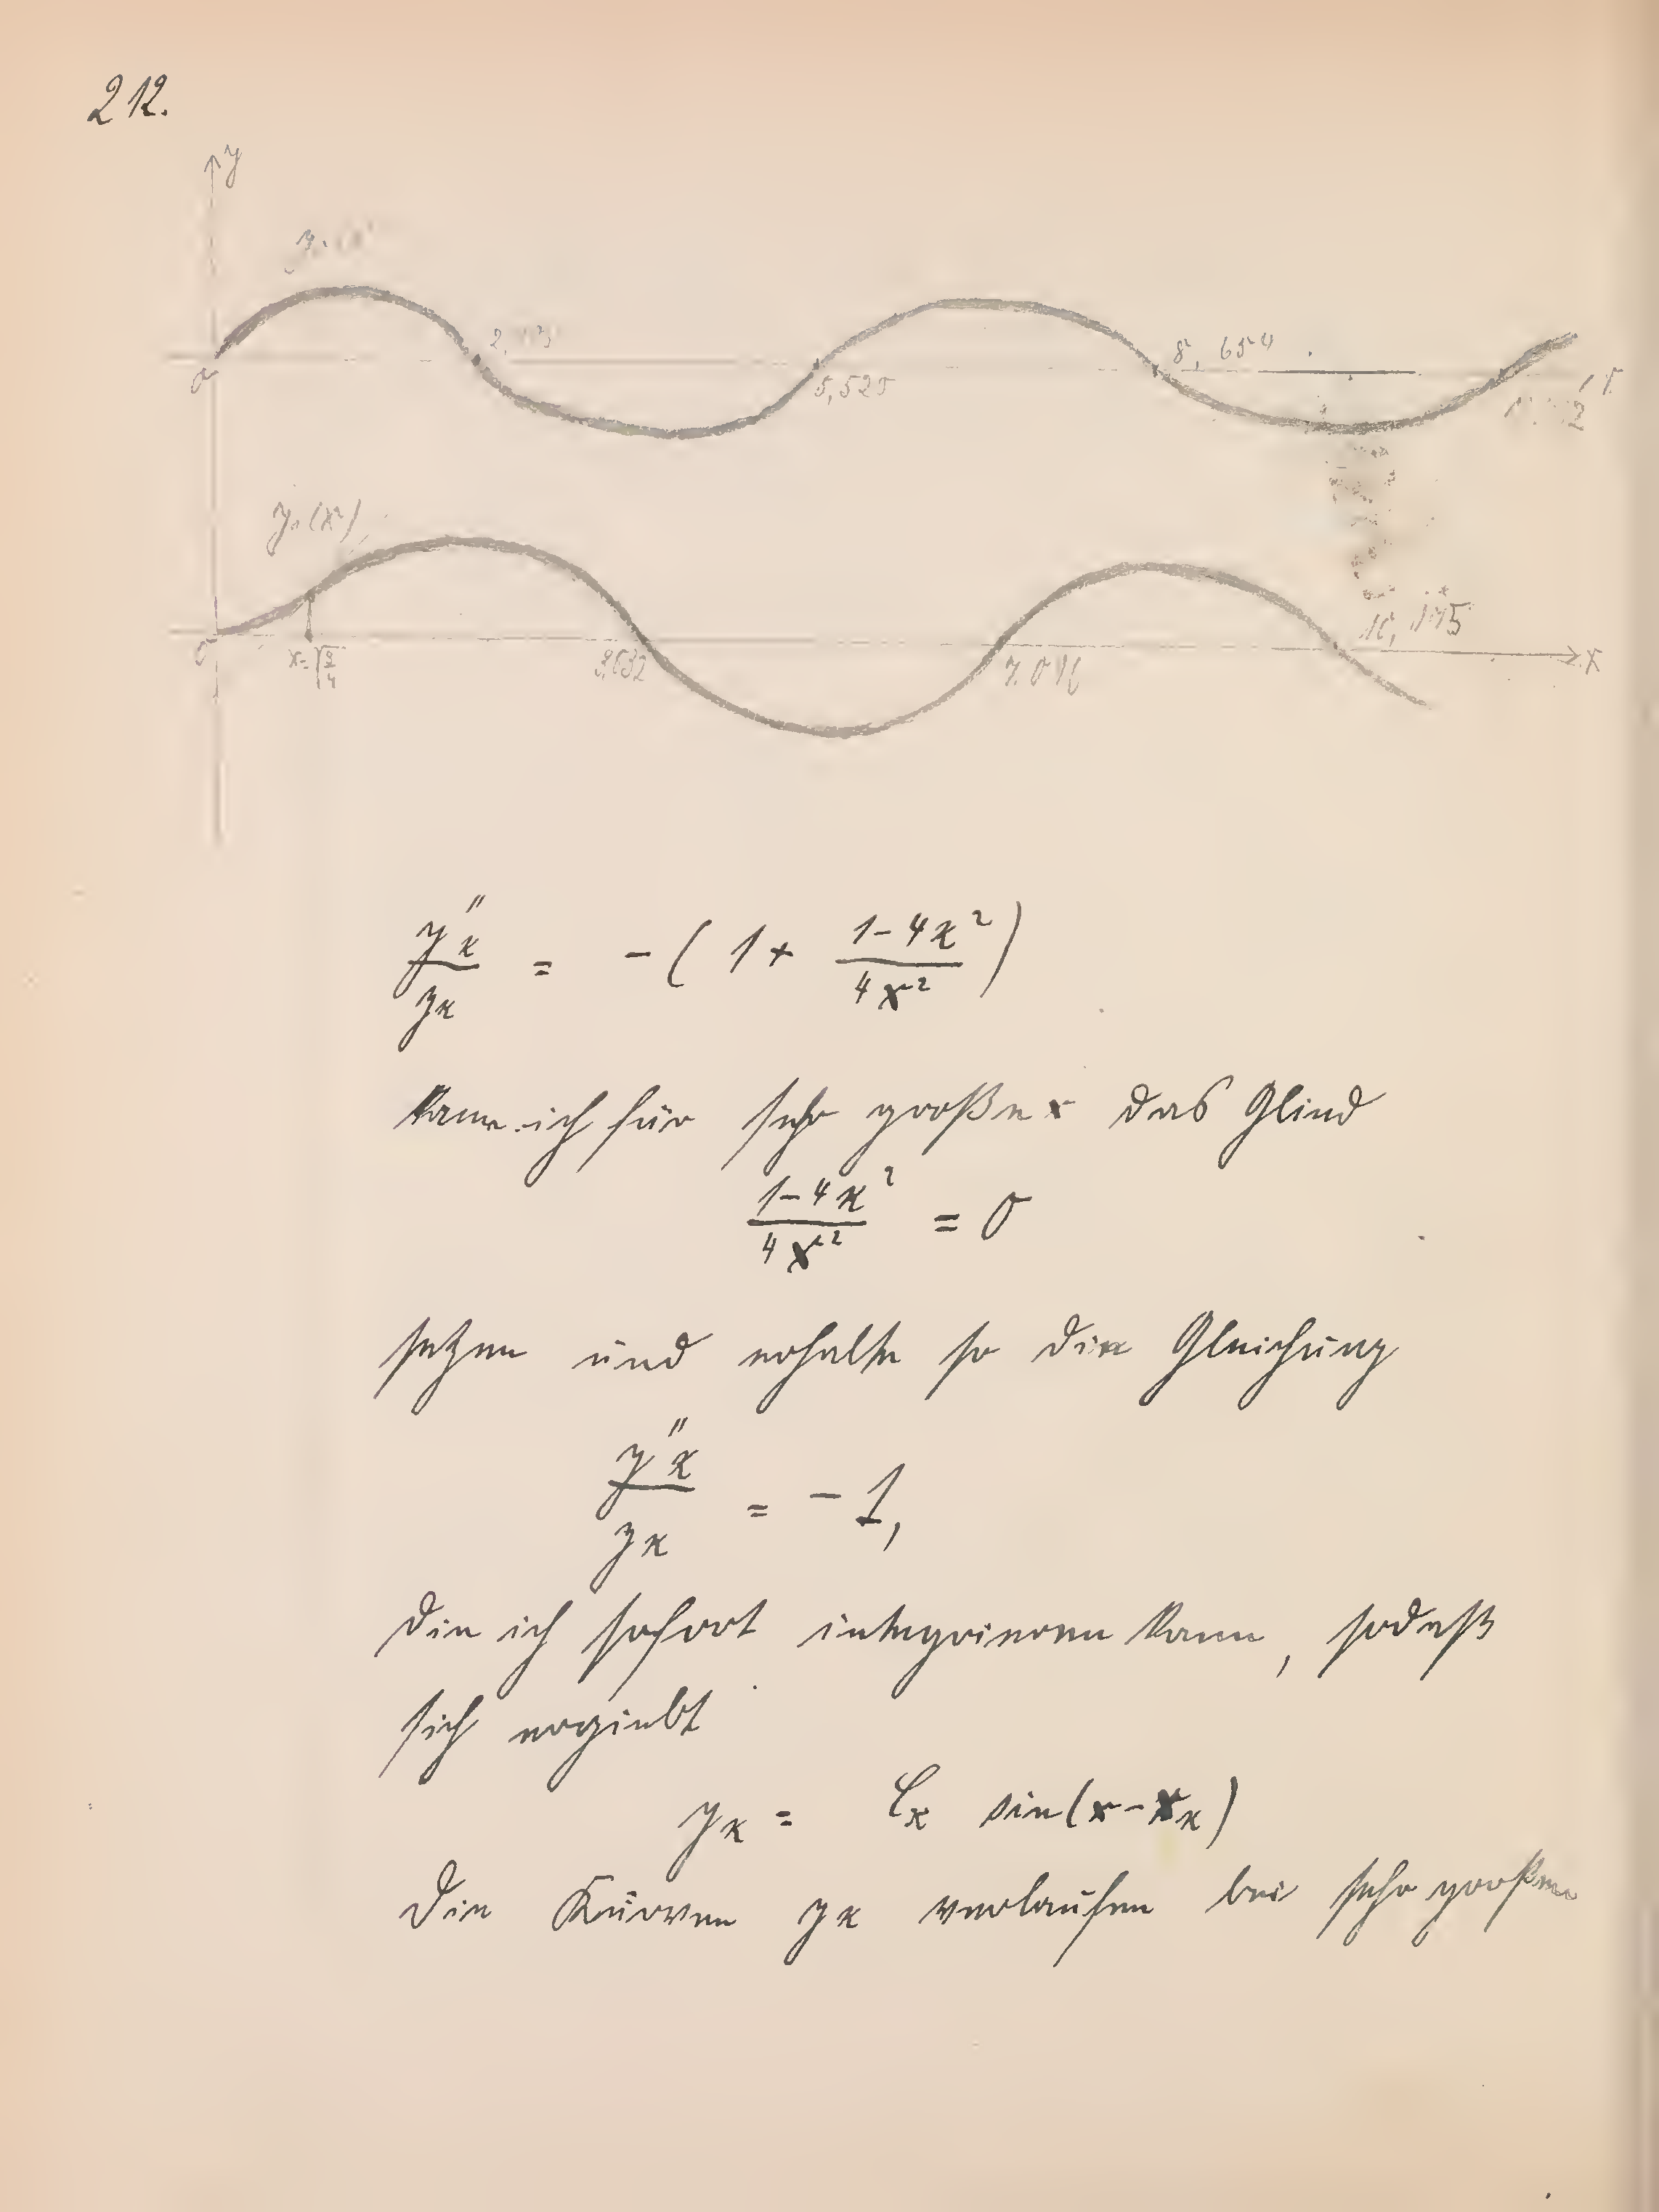 212.
y
0
8,654
5,525
y₁(x)
0
x=√(3/4)
3,832
7.016
x
y''ϰ/yϰ = -(1+ (1-4ϰ²)/(4x²))
kann ich für sehr große x das Glied
(1-4ϰ²)/(4x²) = 0
setzen und erhalte so die Gleichung
y''ϰ/yϰ = -1,
die ich sofort integrieren kann, sodaß
sich ergiebt
yϰ = Cϰ sin(x-xϰ)
Die Kurven yϰ verlaufen bei sehr großen